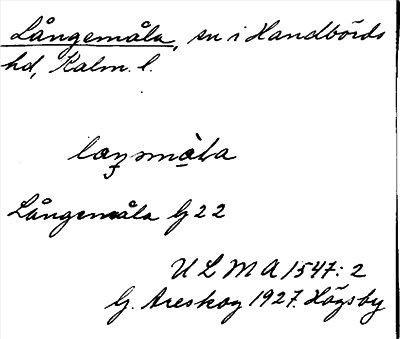 Långemåla, sn i Handbörds
hd, Kalm. l.
Långemåla G 22
U L M A 1547: 2
G. Areskog 1927. Högsby